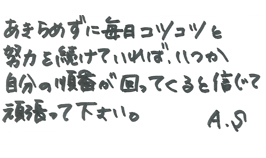 あきらめずに毎日コツコツと
努力を続けていれば、いつか
自分の順番が回ってくると信じて
頑張って下さい。 A.S